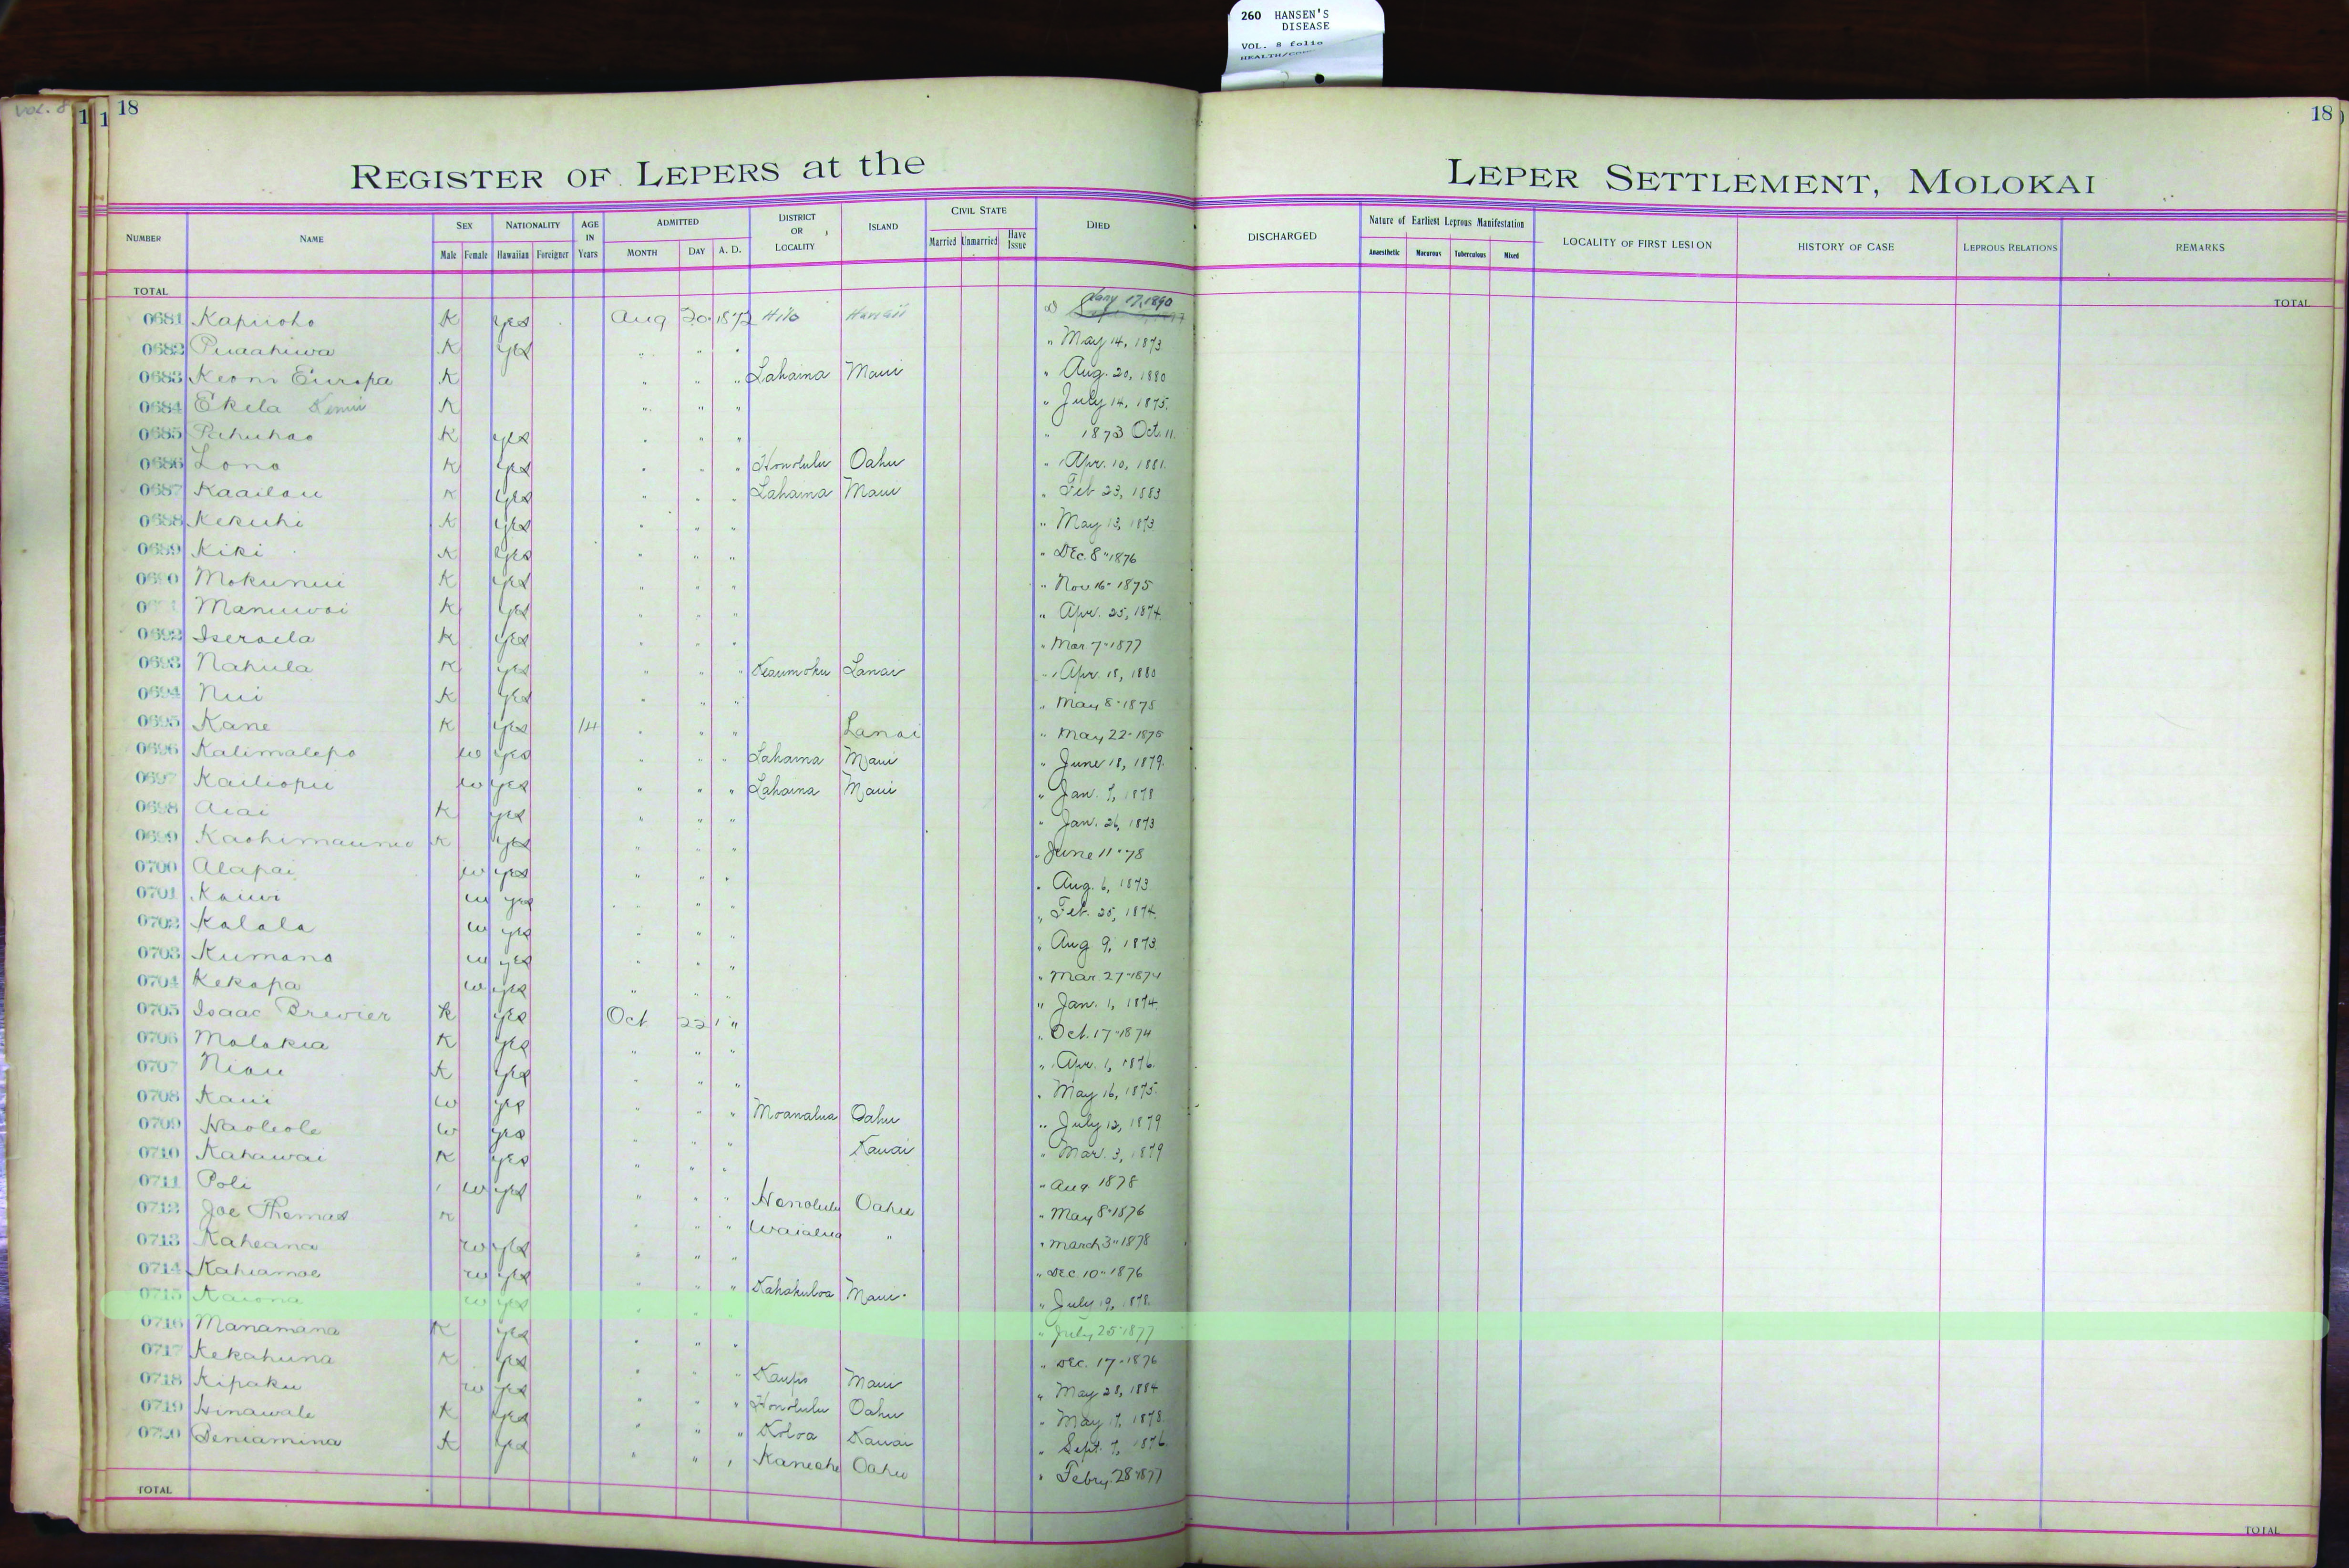 260 HANSEN'S
DISEASE
VOL. 8 folio
VOL. 8
18
18
REGISTER OF LEPERS at the LEPER SETTLEMENT, MOLOKAI
NUMBER NAME SEX Male Female NATIONALITY Hawaiian Foreigner AGE IN Years ADMITTED MONTH DAY A. D. DISTRICT OR LOCALITY ISLAND CIVIL STATE Married Unmarried Have Issue DIED DISCHARGED Nature of Earliest Leprous Manifestation Anaesthetic Macurous Tuberculous Mixed LOCALITY OF FIRST LESION HISTORY OF CASE LEPROUS RELATIONS REMARKS
TOTAL TOTAL
0681 Kapuoho K yes Aug 20 1872 Hilo Hawaii Jany 17, 1890
0682 Puaahiwa K yes " " " " May 14, 1873
0683 Keoni Europa K " " " Lahaina Maui " Aug. 20, 1880
0684 Ekela K " " " " July 14, 1875.
0685 Pahuhao K yes " " " " 1873 Oct. 11.
0686 Lono K yes " " " Honolulu Oahu " Apr. 10, 1881.
0687 Kaailau K yes " " " Lahaina Maui " Feb 23, 1883
0688 Kekuhi K yes " " " " May 13, 1873
0689 Kiki K yes " " " " Dec. 8" 1876
0690 Mokunui K yes " " " " Nov 16" 1875
Manuwai K yes " " " " Apr. 25, 1874.
0692 Iseraela K yes " " " " Mar. 7" 1877
0693 Nahula K yes " " " Keaumoku Lanai " Apr. 18, 1880
0694 Nui K yes " " " " May 8" 1875
0695 Kane K yes 14 " " " Lanai " May 22" 1875
0696 Kalimalepo w yes " " " Lahaina Maui " June 18, 1879.
0697 Kailiopu w yes " " " Lahaina Maui " Jan. 7, 1878
0698 Aiai K yes " " " " Jan. 26, 1873
0699 K yes " " " " June 11" 78
0700 Alapai w yes " " " " Aug. 6, 1873
0701 Kauwi w yes " " " " Feb. 25, 1874.
0702 Kalala w yes " " " " Aug 9, 1873.
0703 Kumano w yes " " " " Mar. 27" 1874
0704 Kekapa w yes " " " " Jan. 1, 1874.
0705 Isaac Brewier K yes Oct 22 " " Oct. 17" 1874
0706 Molokia K yes " " " " Apr. 1, 1876.
0707 Niau K yes " " " " May 16, 1875.
0708 Kaui w yes " " " Moanalua Oahu " July 12, 1879
0709 Haoleole w yes " " " Kauai " Mar. 3, 1879
0710 Kahawai K yes " " " " Aug 1878
0711 Poli w yes " " " Honolulu Oahu " May 8" 1876
0712 Joe Thomas K " " " Waialua " " March 3" 1878
0713 Kaheana w yes " " " " Dec. 10" 1876
0714 Kahiamoe w yes " " " Kahakuloa Maui " July 19, 1878.
0715 Kaiona w yes " " " " July 25" 1877
0716 Manamana K yes " " " " Dec. 17" 1876
0717 Kekahuna K yes " " " Kaupo Maui " May 28, 1884
0718 Kipaku w yes " " " Honolulu Oahu " May 17, 1878.
0719 Hinawale K yes " " " Koloa Kauai " Sept. 7, 1876.
0720 Beniamina K yes " " " Kaneohe Oahu " Febry. 28" 1877
TOTAL TOTAL